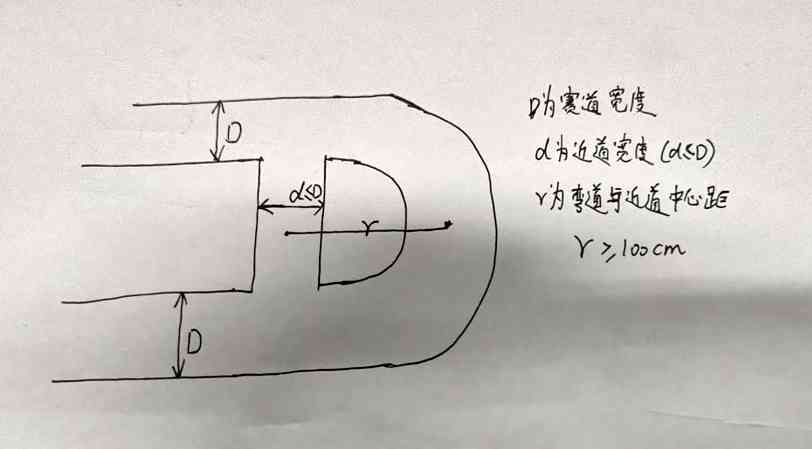 D
d≤D
r
D
D为赛道宽度
d为近道宽度(d≤D)
r为弯道与近道中心距
r≥100cm